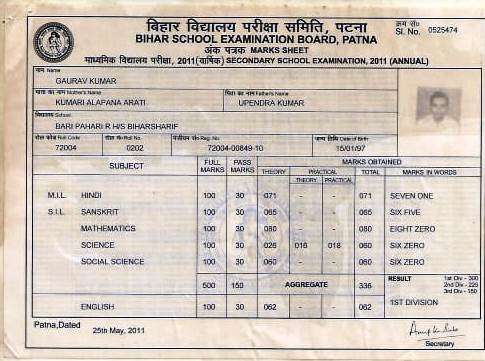 बिहार विद्यालय परीक्षा समिति, पटना
BIHAR SCHOOL EXAMINATION BOARD, PATNA
क्रम सं०
Sl. No. 0525474
अंक पत्रक MARKS SHEET
माध्यमिक विद्यालय परीक्षा, 2011(वार्षिक) SECONDARY SCHOOL EXAMINATION, 2011 (ANNUAL)
नाम Name
GAURAV KUMAR
माता का नाम Mother's Name पिता का नाम Father's Name
KUMARI ALAPANA ARATI UPENDRA KUMAR
विद्यालय School
BARI PAHARI R H/S BIHARSHARIF
रोल कोड Roll Code रोल सं० Roll No. पंजीयन सं० Reg. No. जन्म तिथि Date of Birth
72004 0202 72004-00849-10 15/01/97
SUBJECT FULL MARKS PASS MARKS MARKS OBTAINED
THEORY PRACTICAL TOTAL MARKS IN WORDS
THEORY PRACTICAL
M.I.L. HINDI 100 30 071 - - 071 SEVEN ONE
S.I.L. SANSKRIT 100 30 065 - - 065 SIX FIVE
MATHEMATICS 100 30 080 - - 080 EIGHT ZERO
SCIENCE 100 30 026 016 018 060 SIX ZERO
SOCIAL SCIENCE 100 30 060 - - 060 SIX ZERO
500 150 AGGREGATE 336 RESULT 1st Div - 300
2nd Div - 225
3rd Div - 150
1ST DIVISION
ENGLISH 100 30 062 - - 062
Patna,Dated 25th May, 2011
Secretary